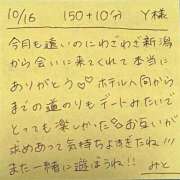 10/16 150+10分 Y様
今月も遠いのにわざわざ新潟
から会いに来てくれて本当に
ありがとう♡♡ホテルへ向かう
までの道のりもデートみたいで
とっても楽しかった♡お互いが
求めあって気持ちよすぎたね!!!
また一緒に遊ぼうね!! みと